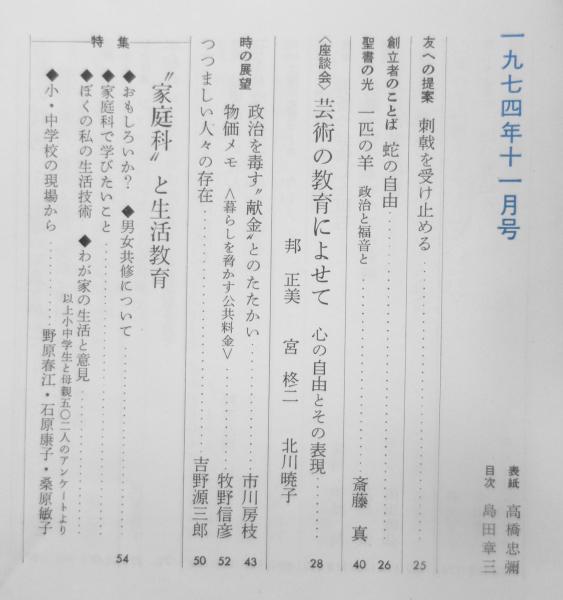 一九七四年十一月号
表紙 高橋忠彌
目次 島田章三
友への提案 刺戟を受け止める 25
創立者のことば 蛇の自由 26
聖書の光 一匹の羊 政治と福音と 斎藤 真 40
〈座談会〉 芸術の教育によせて 心の自由とその表現 28
邦 正美 宮 柊二 北川暁子
時の展望 政治を毒す〝献金〟とのたたかい 市川房枝 43
物価メモ 〈暮らしを脅かす公共料金〉 牧野信彦 52
つつましい人々の存在 吉野源三郎 50
特集
〝家庭科〟と生活教育 54
◆おもしろいか? ◆男女共修について
◆家庭科で学びたいこと
◆ぼくの私の生活技術 ◆わが家の生活と意見
以上小中学生と母親五〇二人のアンケートより
◆小・中学校の現場から 野原春江・石原康子・桑原敏子